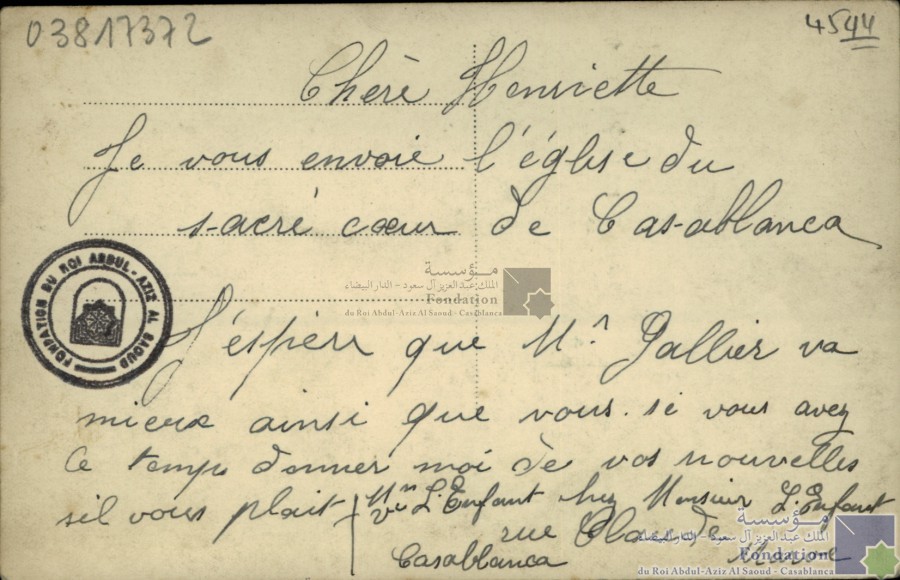 03817372
4544
Chère Henriette
Je vous envoie l'église du
sacré cœur de Casablanca
FONDATION DU ROI ABDUL-AZIZ AL SAOUD
مؤسسة
الملك عبد العزيز آل سعود - الدار البيضاء
Fondation
du Roi Abdul-Aziz Al Saoud - Casablanca
J'espère que Mr Gallier va
mieux ainsi que vous. si vous avez
le temps donner moi de vos nouvelles
sil vous plait
Mm Ve L'Enfant chez Monsieur L'Enfant
rue Claude
Casablanca Maroc
مؤسسة
الملك عبد العزيز آل سعود - الدار البيضاء
Fondation
du Roi Abdul-Aziz Al Saoud - Casablanca